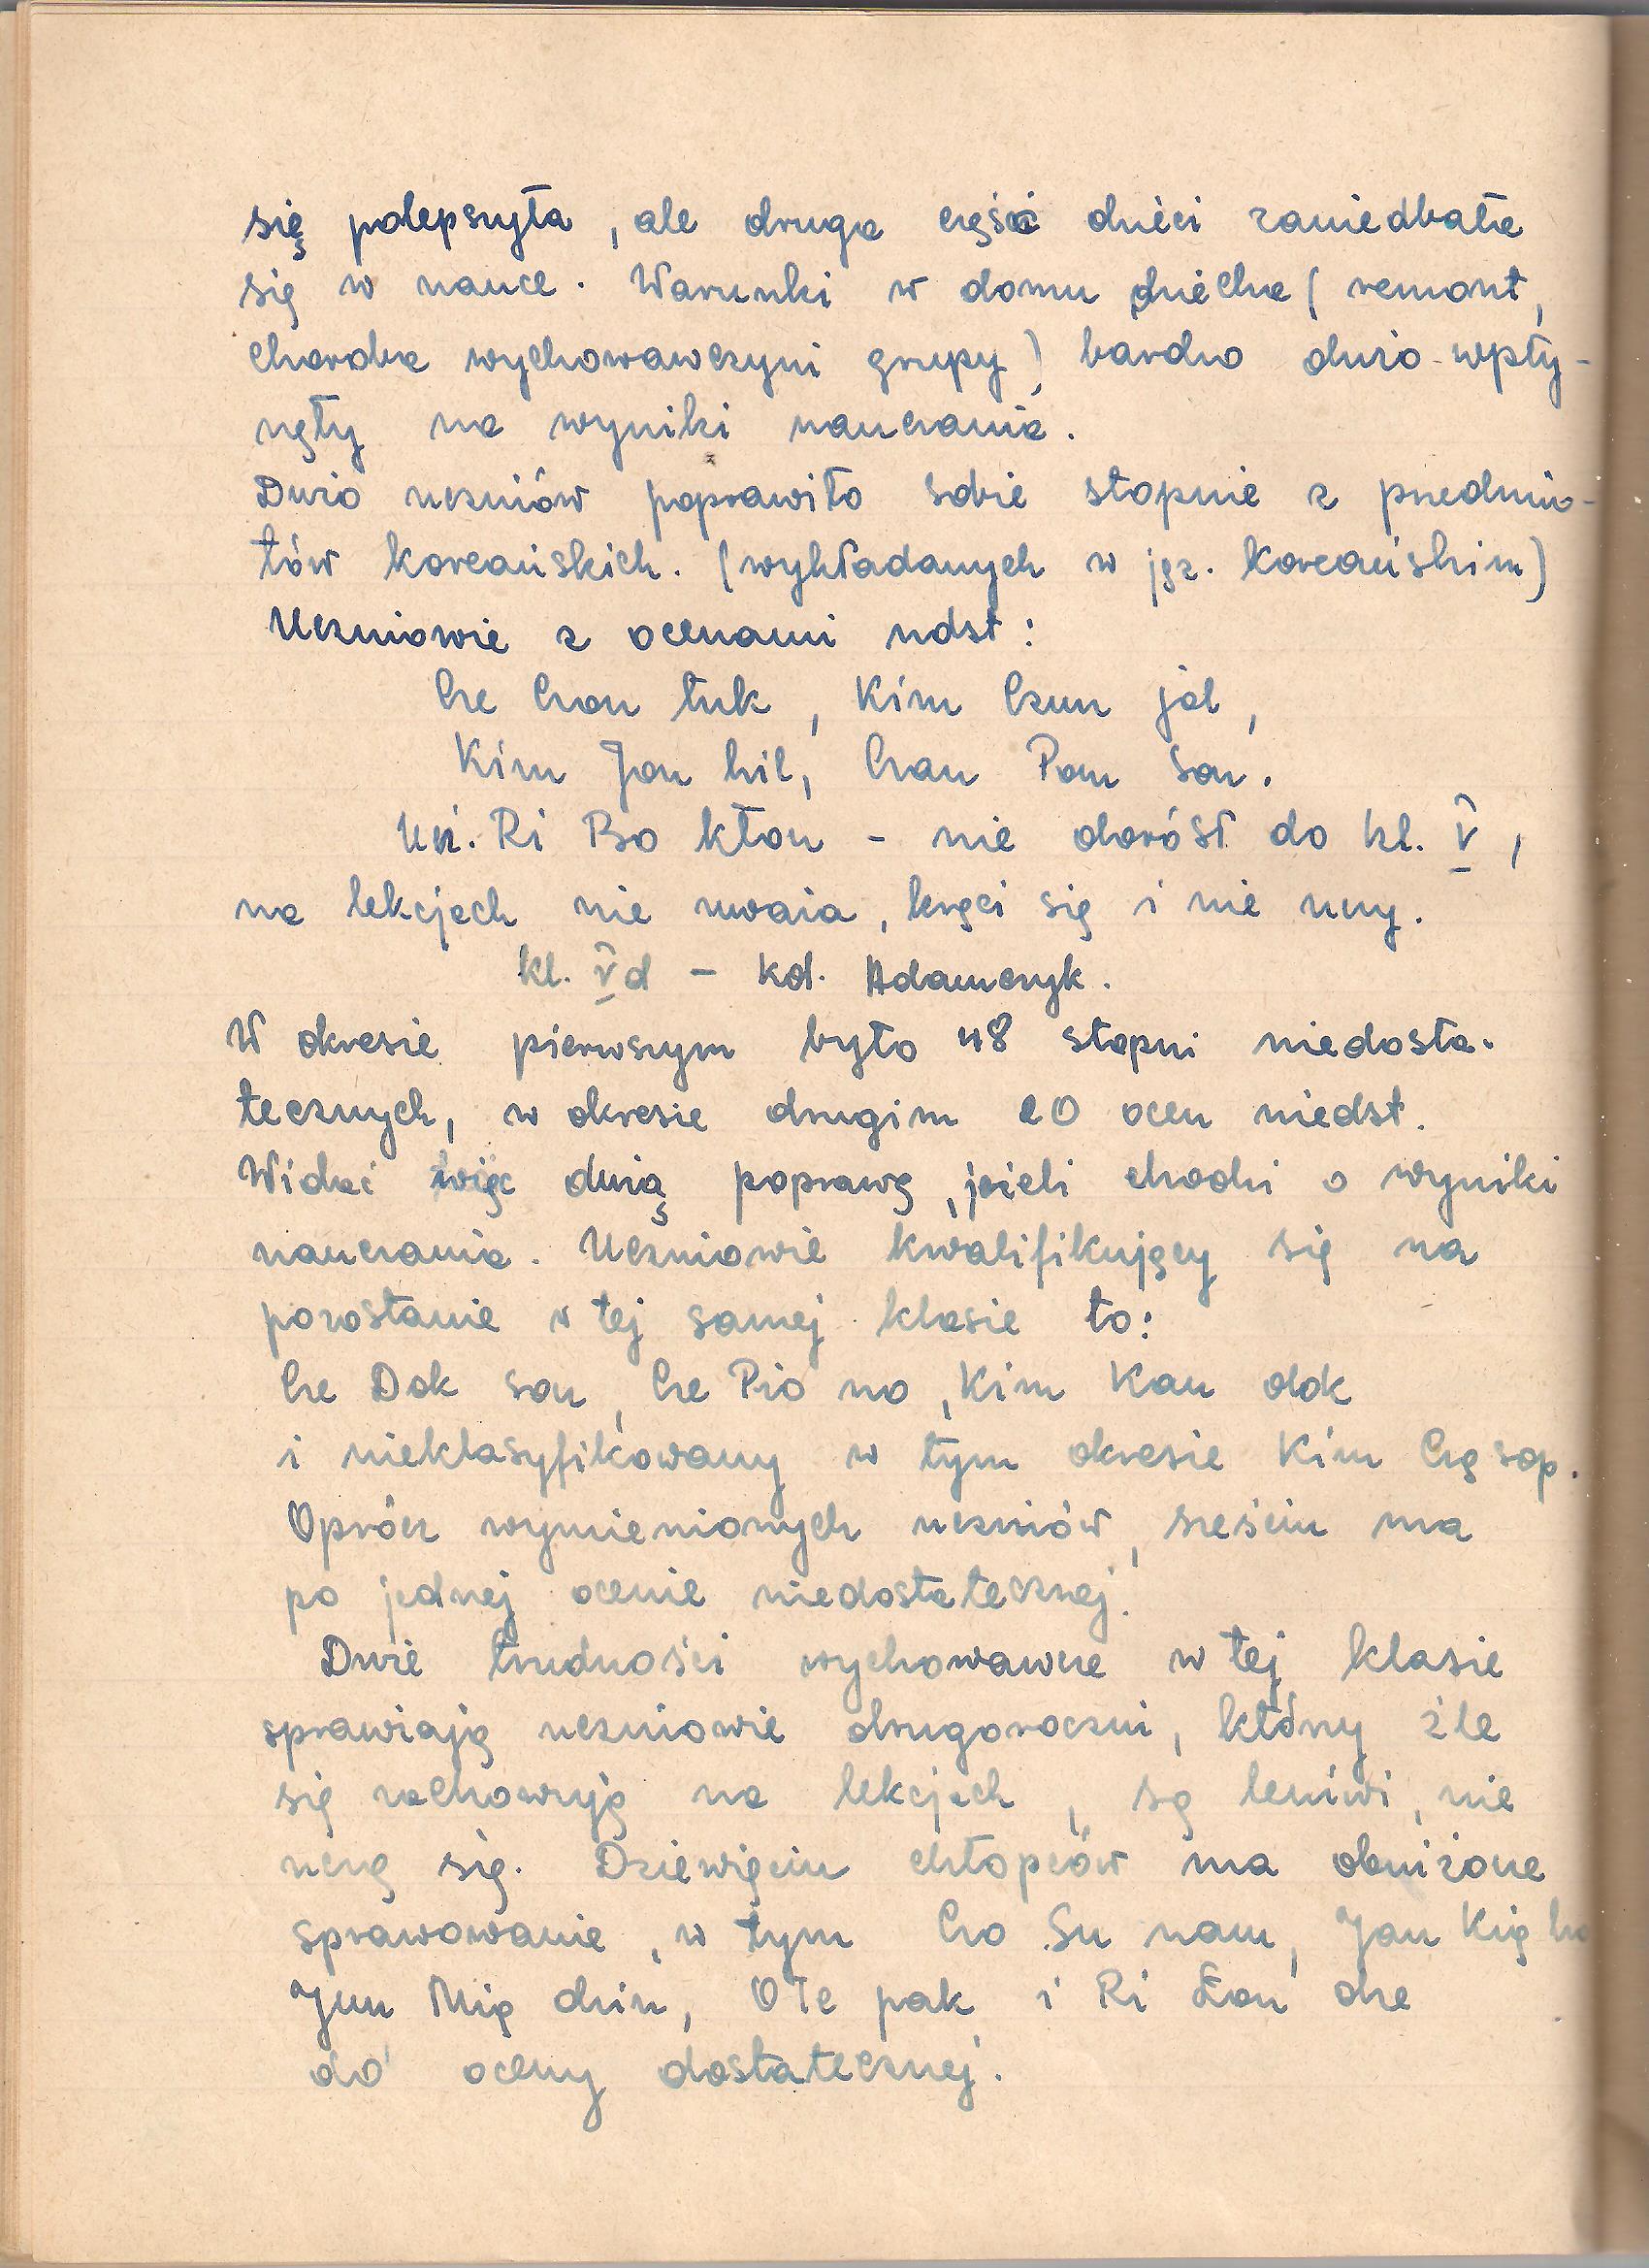 się polepszyła, ale druga część dzieci zaniedbała
się w nauce. Warunki w domu dziecka (remont,
choroba wychowawczyni grupy) bardzo dużo wpły-
nęły na wyniki nauczania.
Dużo uczniów poprawiło sobie stopnie z przedmio-
tów koreańskich. (wykładanych w jęz. koreańskim)
Uczniowie z ocenami ndst:
Cze Czon tuk, Kim Czun jol,
Kim Jon hil, Czan Pom Son.
Ucz. Ri Bo kłon - nie dorósł do kl. V,
na lekcjach nie uważa, kręci się i nie uczy.
kl. Vd - kol. Adamczyk.
W okresie pierwszym było 48 stopni niedosta-
tecznych, w okresie drugim 20 ocen niedst.
Widać więc dużą poprawę, jeżeli chodzi o wyniki
nauczania. Uczniowie kwalifikujący się na
pozostanie w tej samej klasie to:
Cze Dok son, Cze Pio no, Kim Kan dok
i nieklasyfikowany w tym okresie Kim Czę sop.
Oprócz wymienionych uczniów, sześciu ma
po jednej ocenie niedostatecznej.
Duże trudności wychowawcze w tej klasie
sprawiają uczniowie drugoroczni, którzy źle
się zachowują na lekcjach, są leniwi, nie
uczą się. Dziewięciu chłopców ma obniżone
sprawowanie, w tym Czo Su nam, Jan Kię
Jun Mię dzin, O Te pak i Ri Łon dze
do oceny dostatecznej.